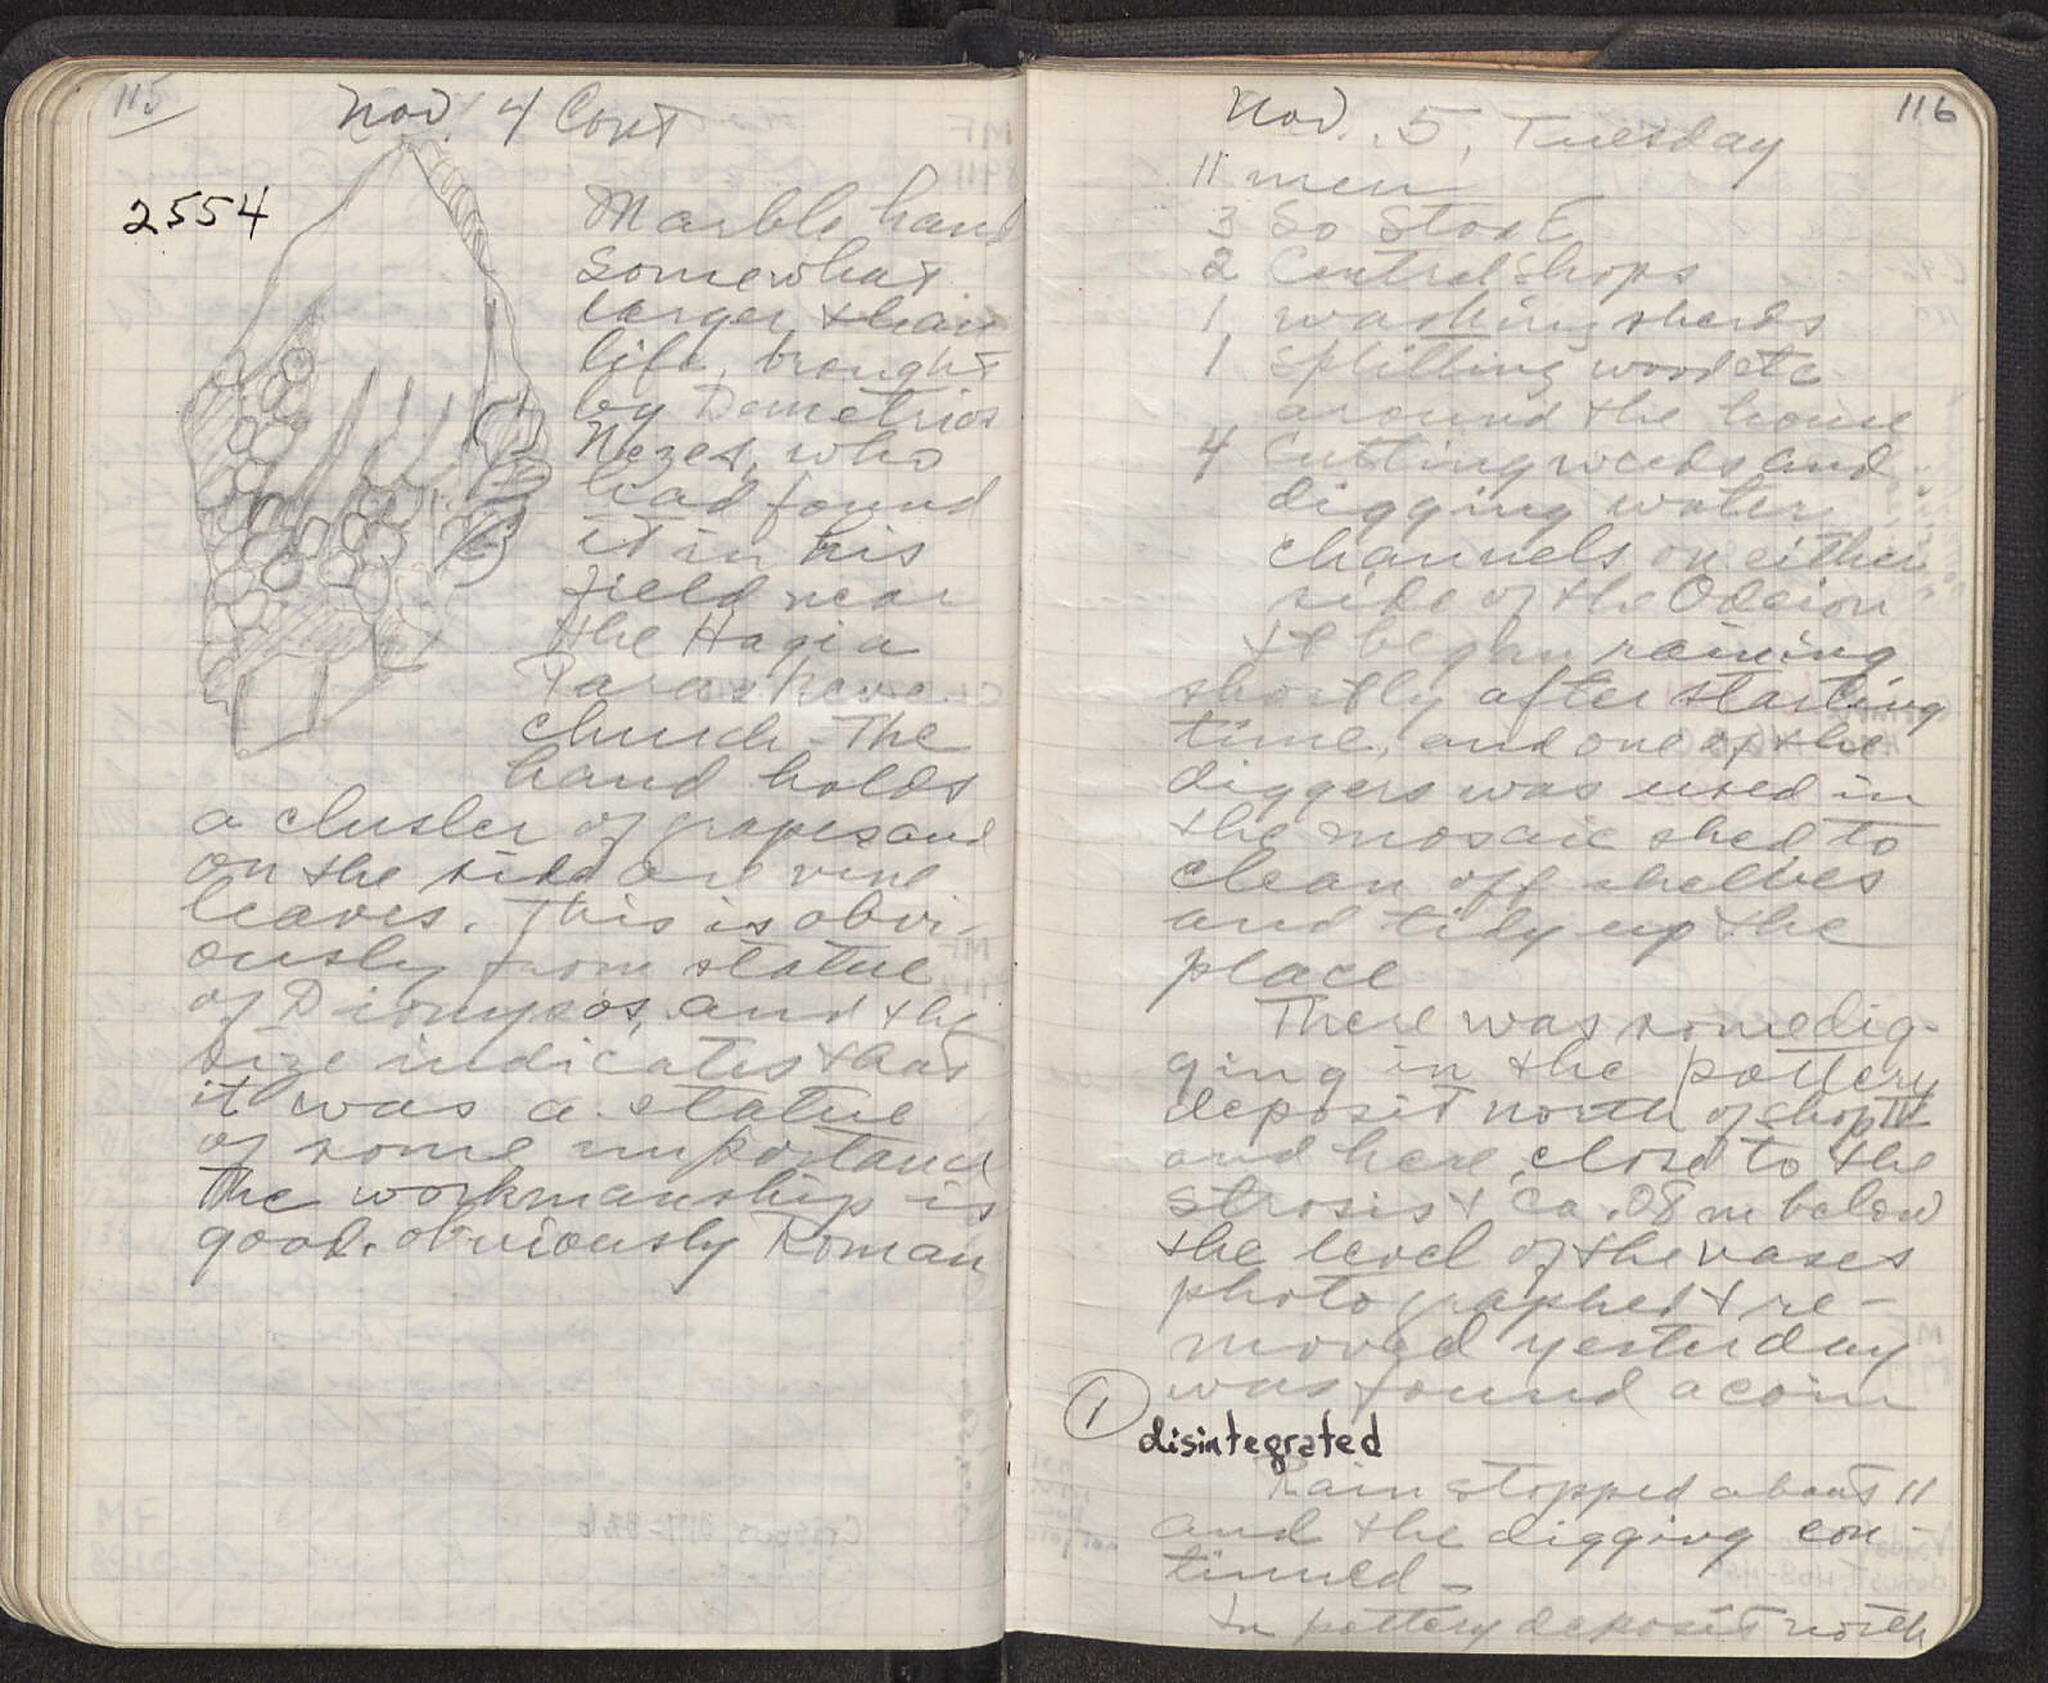 115
Nov 4 Cont
2554
Marble hand
somewhat
larger than
life, brought
by Demetrios
Nezes, who
had found
it in his
field near
the Hagia
Paraskeve
church. The
hand holds
a cluster of grapes and
on the side are vine
leaves. This is obvi-
ously from statue
of Dionysos, and the
size indicates that
it was a statue
of some importance
The workmanship is
good. obviously Roman
116
Nov. 5, Tuesday
11 men
3 So Stoa E
2 Central Shops
1 washing sherds
1 splitting wood etc
around the house
4 Cutting weeds and
digging water
channels on either
side of the Odeion
It began raining
shortly after starting
time, and one of the
diggers was used in
the mosaic shed to
clean off shelves
and tidy up the
place
There was some dig-
ging in the pottery
deposit north of shop IV
and here, close to the
strosis & ca .08 m below
the level of the vases
photographed & re-
moved yesterday
was found a coin
1
disintegrated
Rain stopped about 11
and the digging con-
tinued -
In pottery deposit north